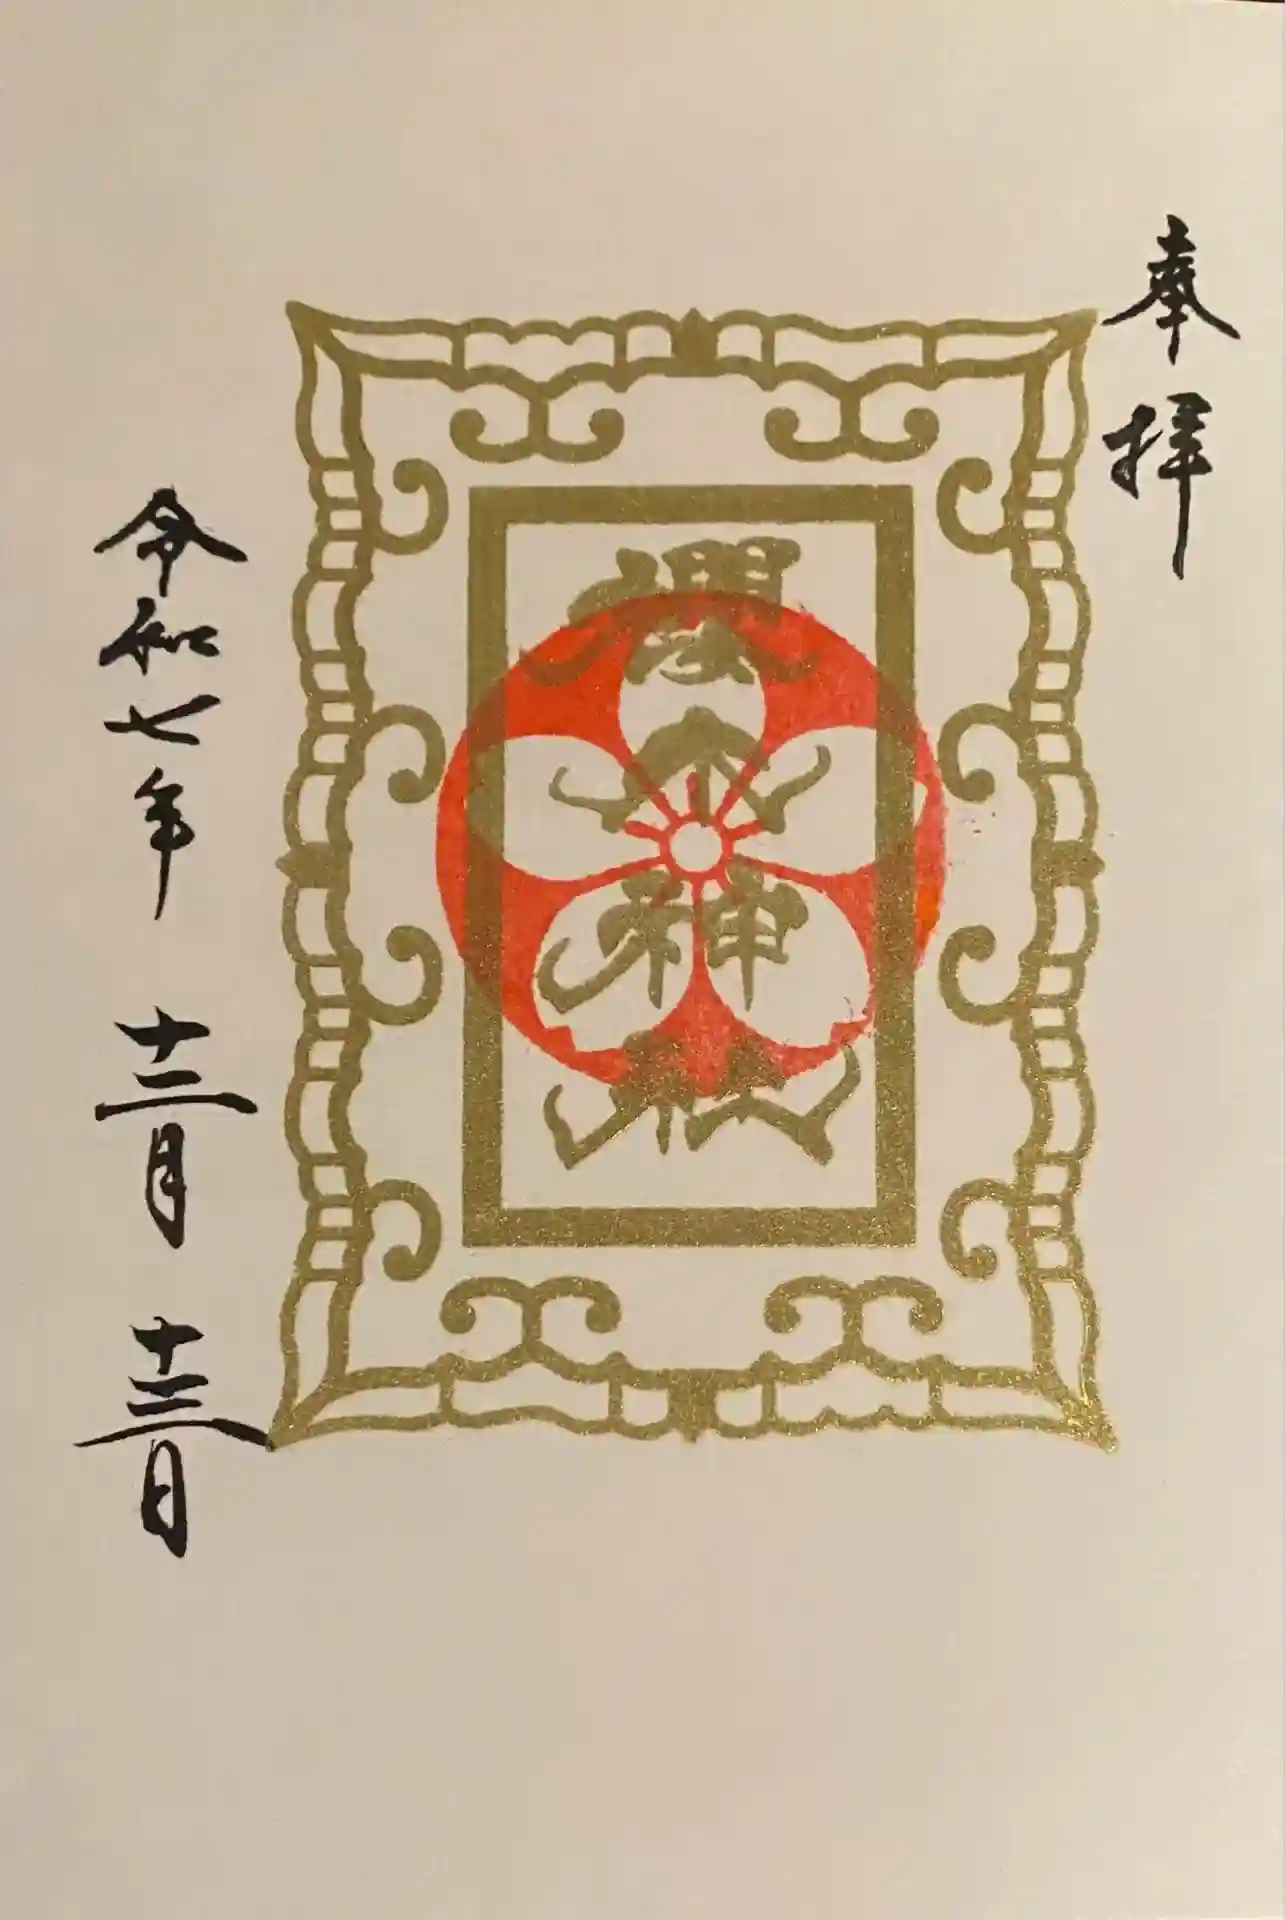 奉拝
櫻木神社
令和七年 十二月 十三日